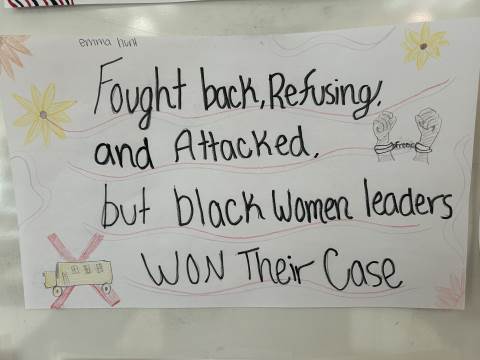 emma hunt
Fought back, Refusing,
and Attacked,
but black Women leaders
WON Their Case